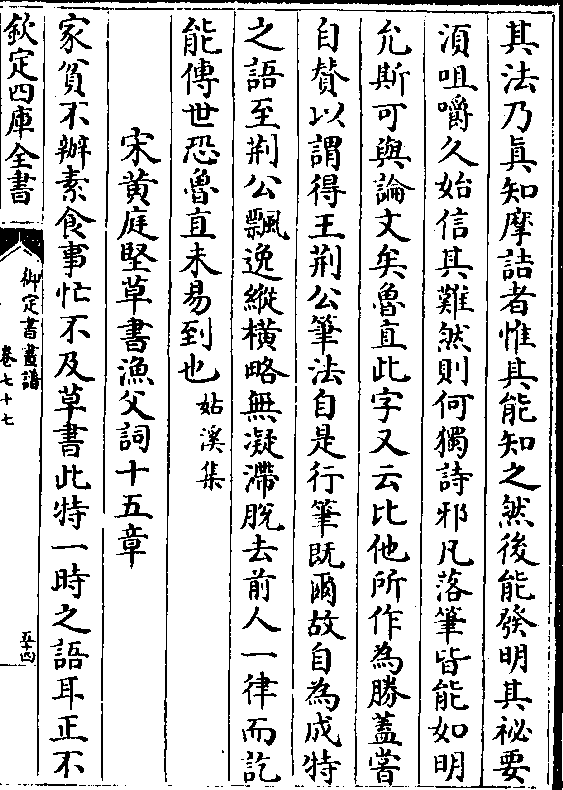 其法乃真知摩詰者惟其能知之然後能發明其祕要
湏咀嚼久始信其難然則何獨詩邪凡落筆皆能如明
允斯可與論文矣魯直此字又云比他所作為勝蓋嘗
自賛以謂得王荆公筆法自是行筆既爾故自為成特
之語至荆公飄逸縱横略無凝滯脫去前人一律而訖
能傳世恐魯直未易到也姑溪集
宋黄庭堅草書漁父詞十五章
家貧不辦素食事忙不及草書此特一時之語耳正不
欽定四庫全書
御定書畫譜
卷七十七
五十四